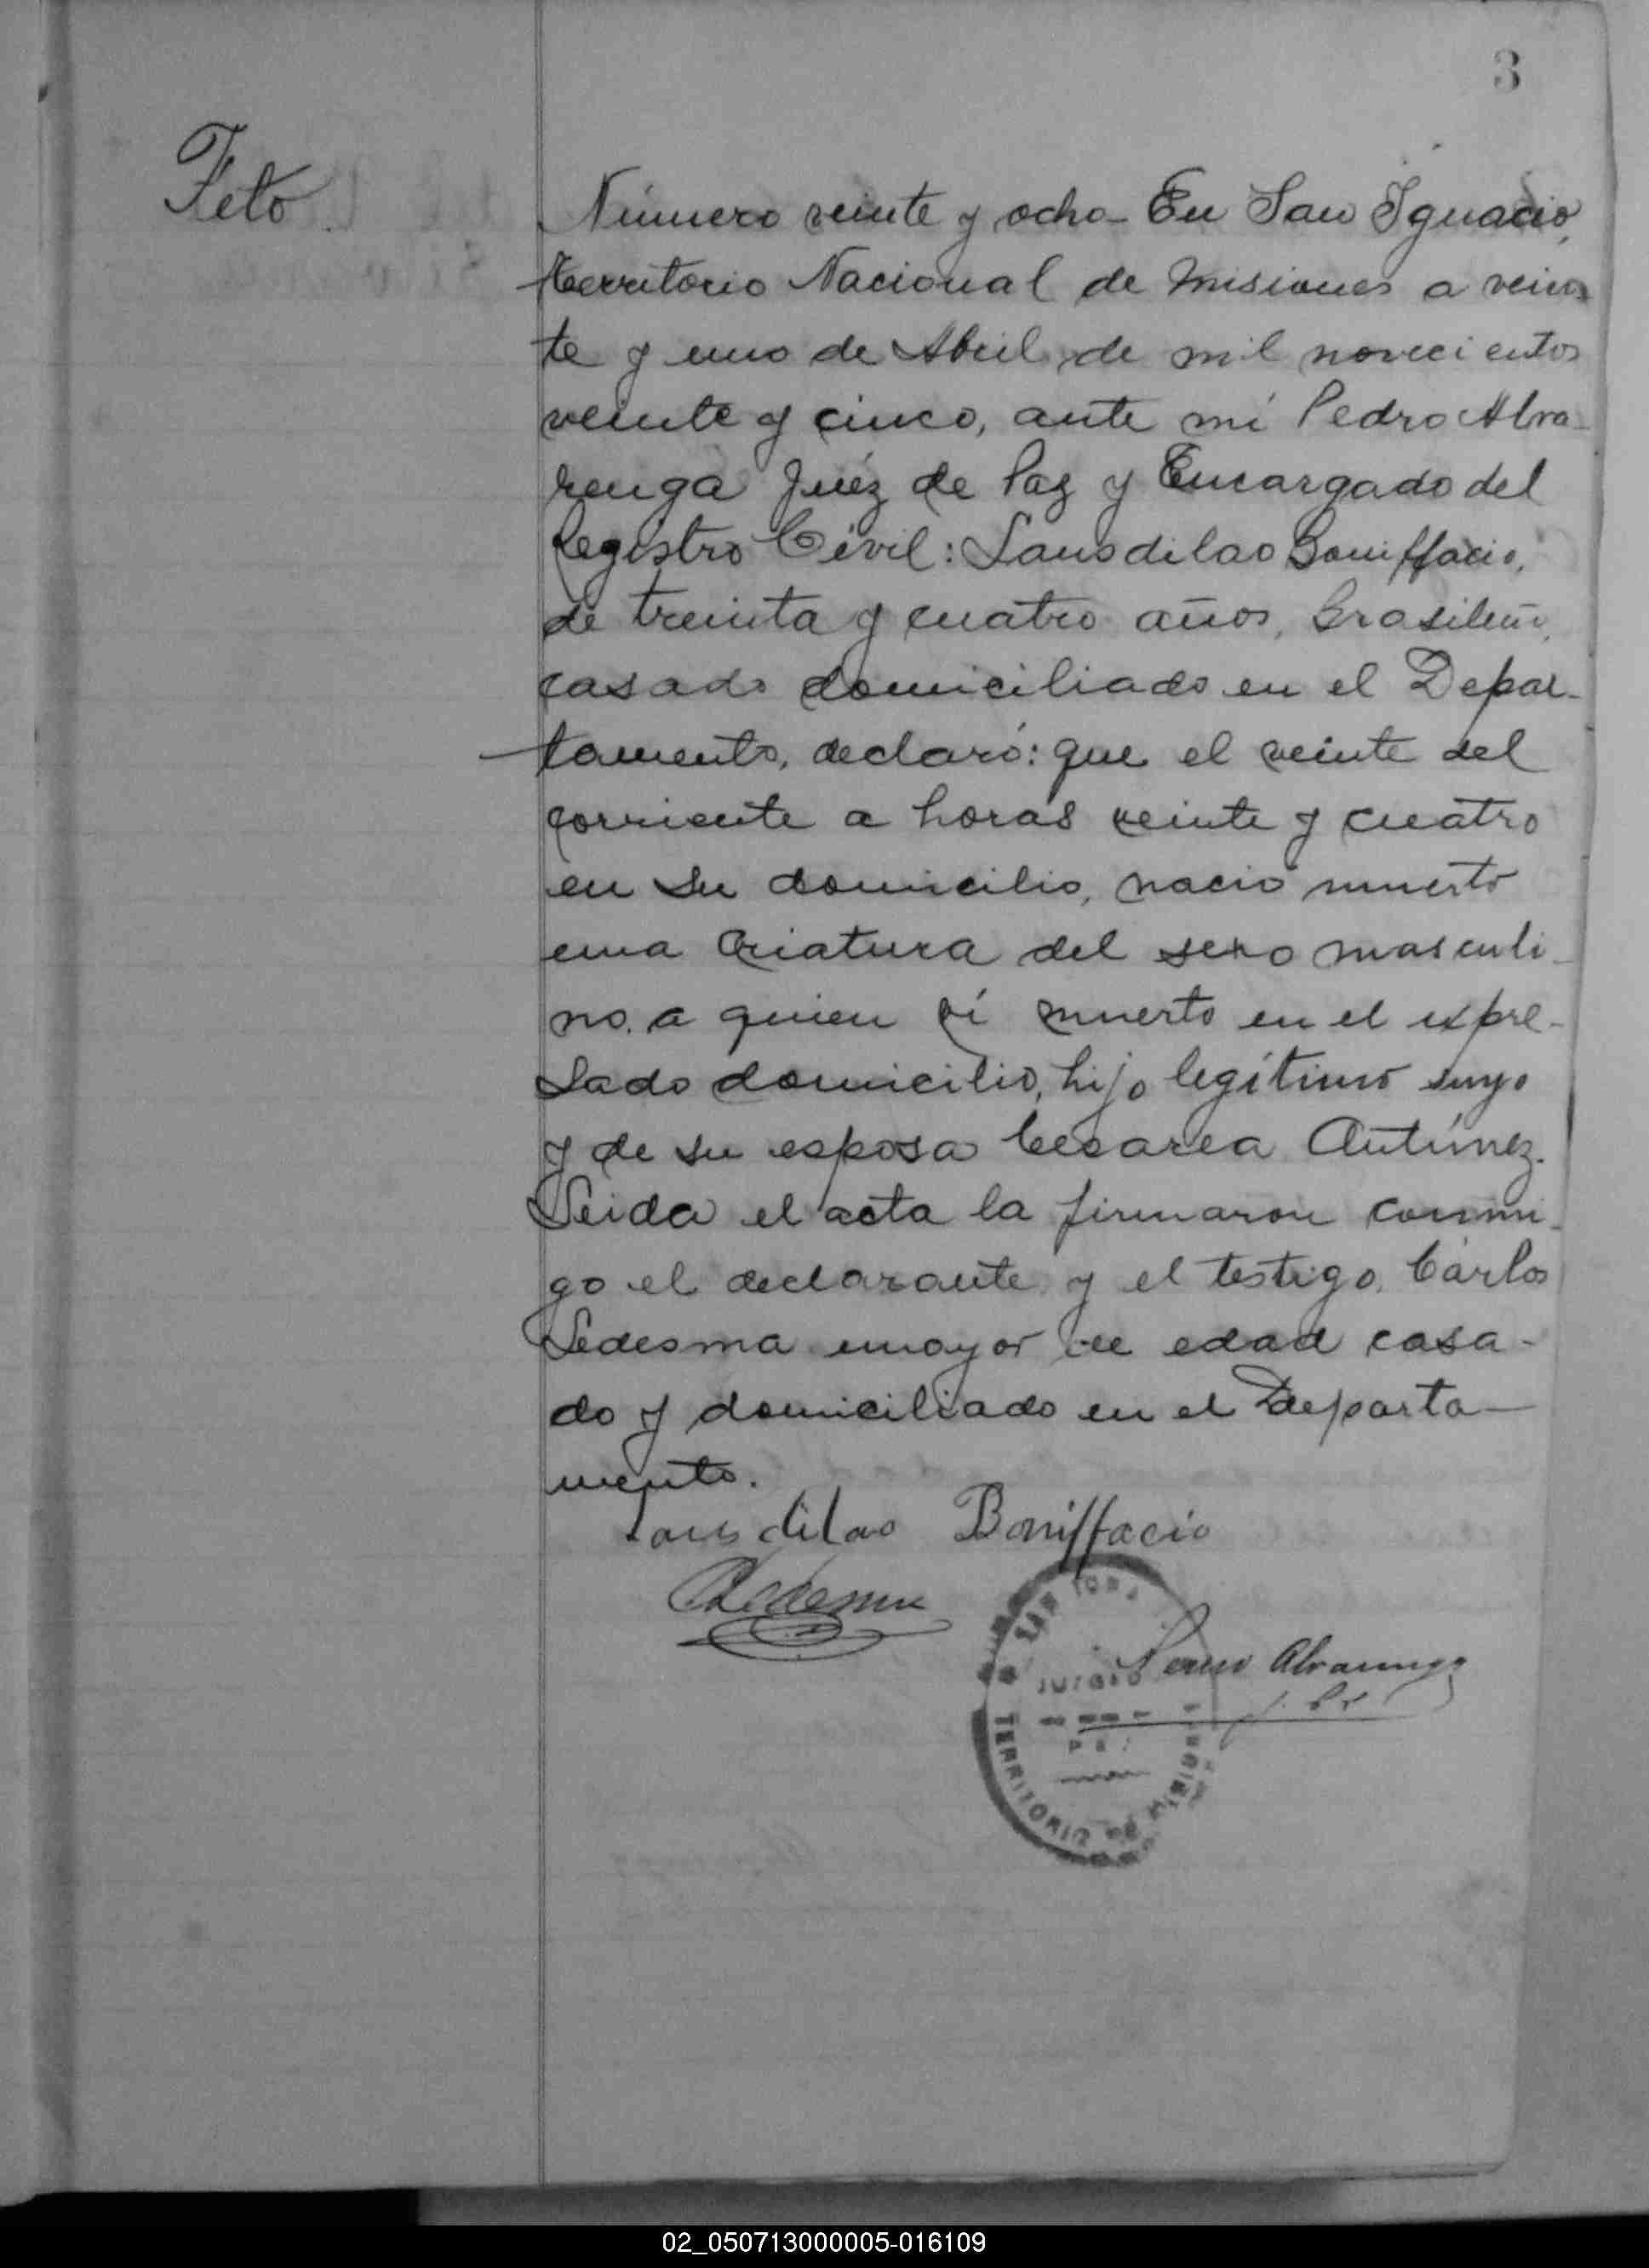 3
Feto
Número veinte y ocho - En San Ignacio,
territorio Nacional de Misiones a vein
te y uno de Abril de mil novecientos
veinte y cinco, ante mí Pedro Alva-
renga Juéz de Paz y Encargado del
Registro Civil: Lausdilao Boniffacio,
de treinta y cuatro años, Brasileño,
casado domiciliado en el Depar-
tamento, declaró: que el veinte del
corriente a horas veinte y cuatro
en su domicilio, nació muerto
una criatura del sexo masculi-
no. a quien ví muerto en el expre-
sado domicilio, hijo legítimo suyo
y de su esposa Cesarea Antúnez.
Leida el acta la firmaron conmi-
go el declarante y el testigo, Cárlos
Ledesma mayor de edad casa-
do y domiciliado en el Departa-
mento.
Lausdilao Boniffacio
CLedesma
Pedro Alvarenga
J. Pz
SAN IGNA
JUZGADO
TERRITORIO DE MISIONES
02_050713000005-016109